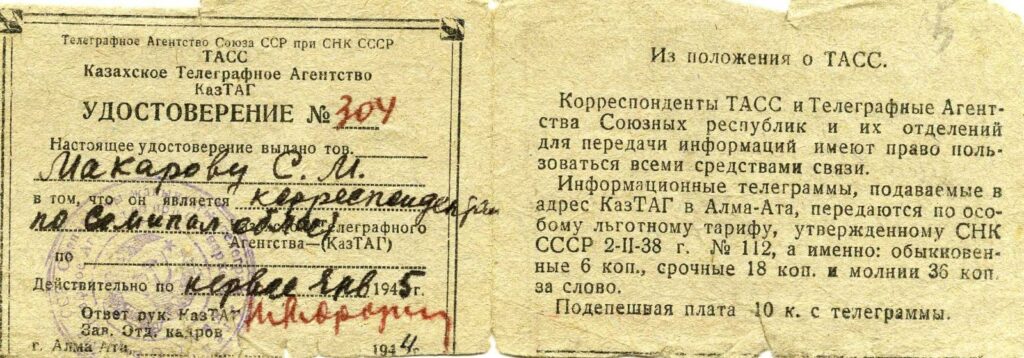 Телеграфное Агентство Союза ССР при СНК СССР
ТАСС
Казахское Телеграфное Агентство
КазТАГ
УДОСТОВЕРЕНИЕ № 304
Настоящее удостоверение выдано тов.
Макарову С. М.
в том, что он является корреспондентом
по Семипал. области Телеграфного
Агентства—(КазТАГ)
по
Действительно по первое янв 1945 г.
Ответ рук. КазТАГ
Зав. Отд. кадров
г. Алма Ата, 1944 г.
Из положения о ТАСС.
Корреспонденты ТАСС и Телеграфные Агент-
ства Союзных республик и их отделений
для передачи информаций имеют право поль-
зоваться всеми средствами связи.
Информационные телеграммы, подаваемые в
адрес КазТАГ в Алма-Ата, передаются по осо-
бому льготному тарифу, утвержденному СНК
СССР 2-II-38 г. № 112, а именно: обыкновен-
ные 6 коп., срочные 18 коп. и молнии 36 коп.
за слово.
Подепешная плата 10 к. с телеграммы.